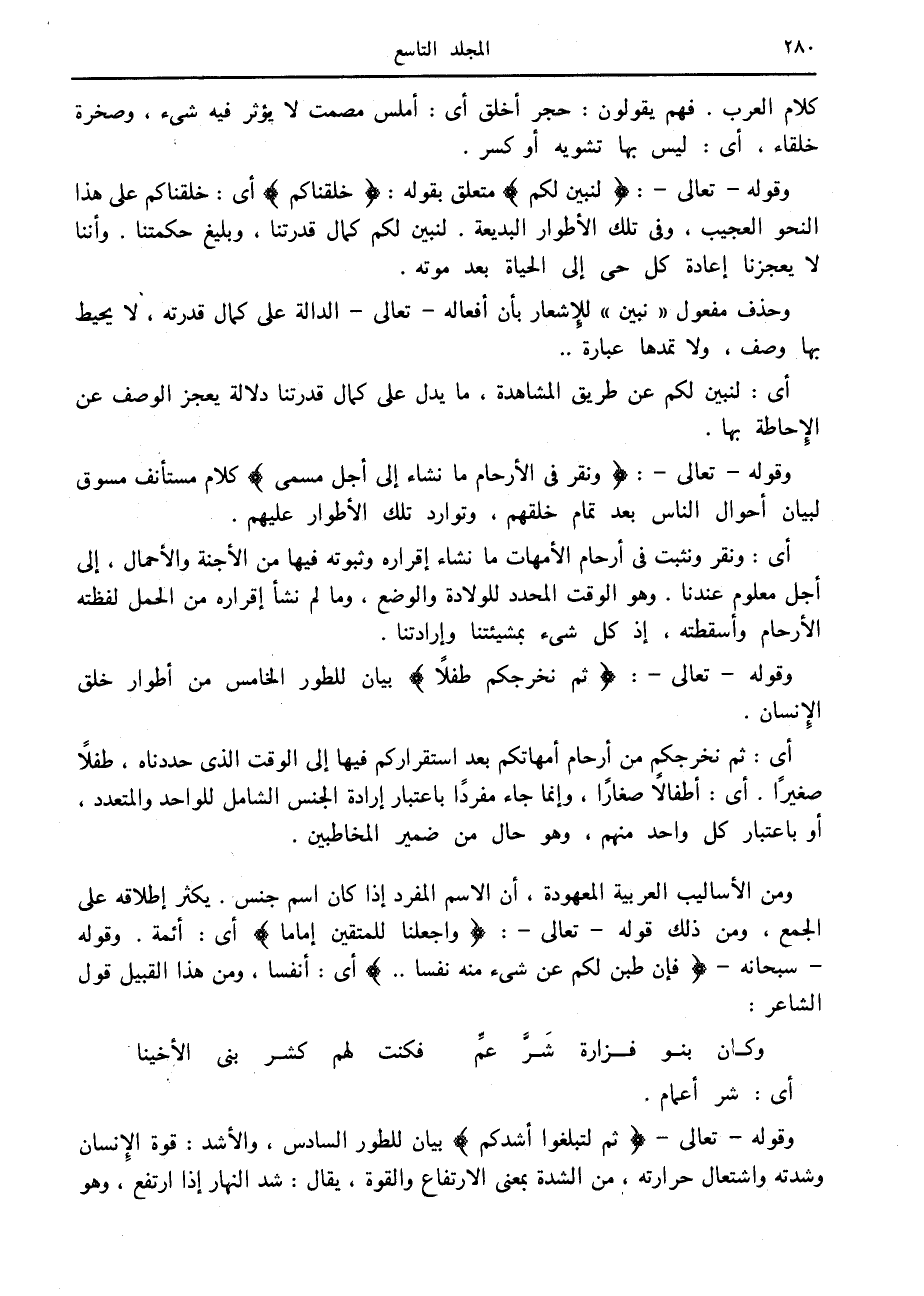 ٢٨٠
المجلد التاسع
كلام العرب . فهم يقولون : حجر أخلق أى : أملس مصمت لا يؤثر فيه شىء ، وصخرة
خلقاء ، أى : ليس بها تشويه أو كسر .
وقوله - تعالى - : ﴿ لنبين لكم ﴾ متعلق بقوله : ﴿ خلقناكم ﴾ أى : خلقناكم على هذا
النحو العجيب ، وفى تلك الأطوار البديعة . لنبين لكم كمال قدرتنا ، وبليغ حكمتنا . وأننا
لا يعجزنا إعادة كل حى إلى الحياة بعد موته .
وحذف مفعول « نبين » للإشعار بأن أفعاله - تعالى - الدالة على كمال قدرته ، لا يحيط
بها وصف ، ولا تمدها عبارة ..
أى : لنبين لكم عن طريق المشاهدة ، ما يدل على كمال قدرتنا دلالة يعجز الوصف عن
الإحاطة بها .
وقوله - تعالى - : ﴿ ونقر فى الأرحام ما نشاء إلى أجل مسمى ﴾ كلام مستأنف مسوق
لبيان أحوال الناس بعد تمام خلقهم ، وتوارد تلك الأطوار عليهم .
أى : ونقر ونثبت فى أرحام الأمهات ما نشاء إقراره وثبوته فيها من الأجنة والأحمال ، إلى
أجل معلوم عندنا . وهو الوقت المحدد للولادة والوضع ، وما لم نشأ إقراره من الحمل لفظته
الأرحام وأسقطته ، إذ كل شىء بمشيئتنا وإرادتنا .
وقوله - تعالى - : ﴿ ثم نخرجكم طفلًا ﴾ بيان للطور الخامس من أطوار خلق
الإنسان .
أى : ثم نخرجكم من أرحام أمهاتكم بعد استقراركم فيها إلى الوقت الذى حددناه ، طفلًا
صغيرًا . أى : أطفالًا صغارًا ، وإنما جاء مفردًا باعتبار إرادة الجنس الشامل للواحد والمتعدد ،
أو باعتبار كل واحد منهم ، وهو حال من ضمير المخاطبين .
ومن الأساليب العربية المعهودة ، أن الاسم المفرد إذا كان اسم جنس . يكثر إطلاقه على
الجمع ، ومن ذلك قوله - تعالى - : ﴿ واجعلنا للمتقين إماما ﴾ أى : أئمة . وقوله
- سبحانه - ﴿ فإن طبن لكم عن شىء منه نفسا .. ﴾ أى : أنفسا ، ومن هذا القبيل قول
الشاعر :
وكان بنو فزارة شَرَّ عمٍّ فكنت لهم كشر بنى الأخينا
أى : شر أعمام .
وقوله - تعالى - ﴿ ثم لتبلغوا أشدكم ﴾ بيان للطور السادس ، والأشد : قوة الإنسان
وشدته واشتعال حرارته ، من الشدة بمعنى الارتفاع والقوة ، يقال : شد النهار إذا ارتفع ، وهو